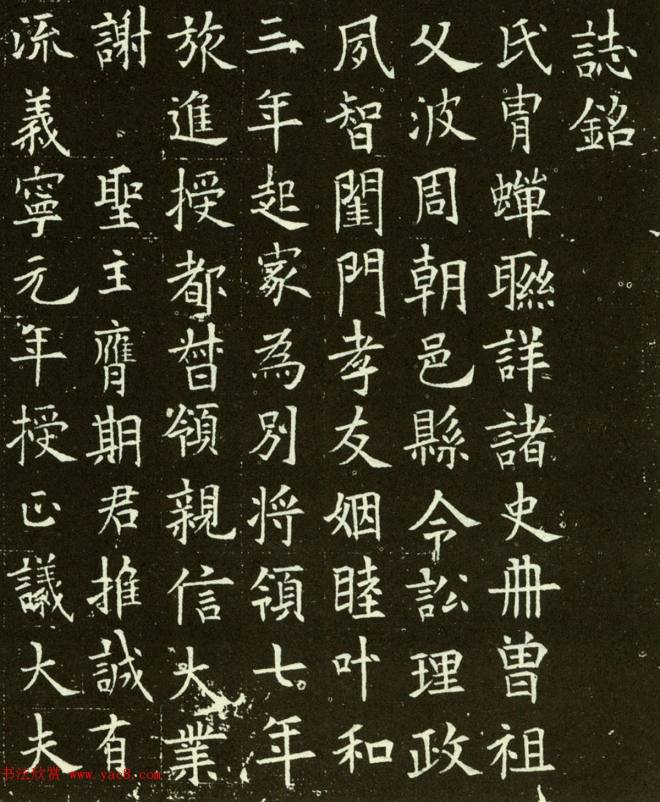 誌銘
氏胄蟬聯詳諸史冊曽祖
父波周朝邑縣令訟理政
夙智閨門孝友姻睦叶和
三年起家為別將領七年
旅進授都督領親信大業
謝聖主膺期君推誠有
流義寧元年授正議大夫
书法欣赏 www.yac8.com